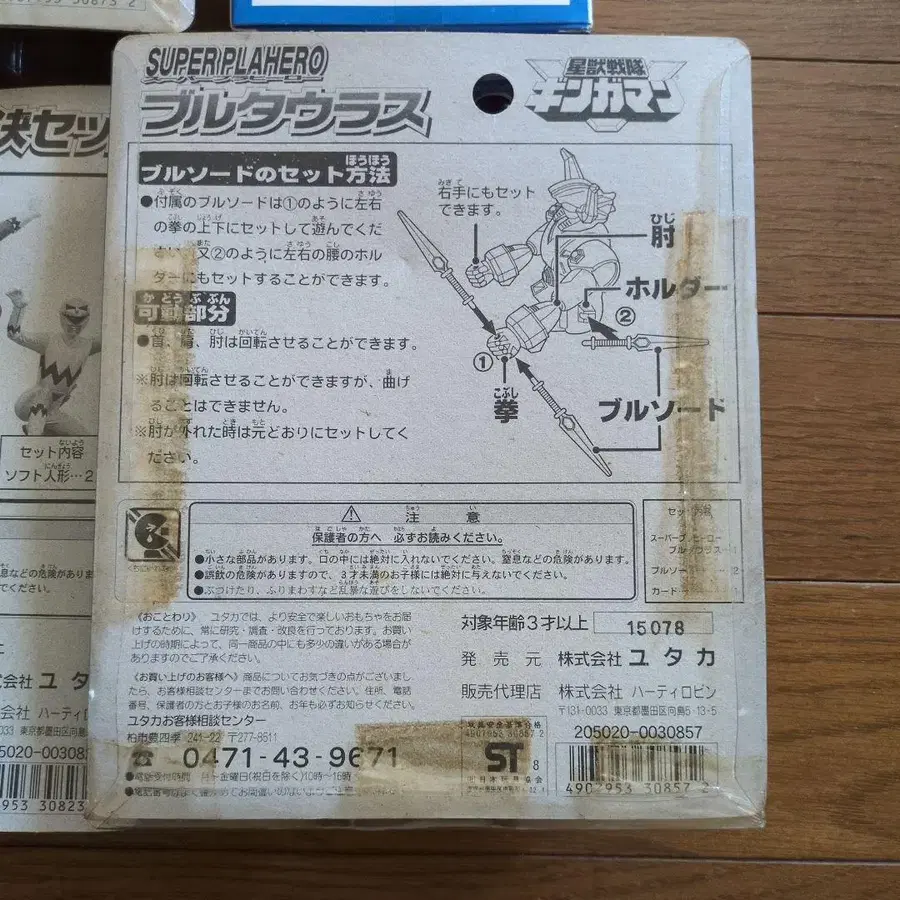 30873 2
SUPER PLAHERO
ブルタウラス
星獣戦隊
ギンガマン
決セッ
ブルソードのセット方法
●付属のブルソードは①のように左右
の拳の上下にセットして遊んでくだ
さい。又②のように左右の腰のホル
ダーにもセットすることができます。
可動部分
●首、肩、肘は回転させることができます。
※肘は回転させることができますが、曲げ
ることはできません。
※肘が外れた時は元どおりにセットしてく
ださい。
右手にもセット
できます。
肘
ホルダー
②
①
拳
ブルソード
セット内容
ソフト人形…2
注意
保護者の方へ 必ずお読みください。
●小さな部品があります。口の中には絶対に入れないでください。窒息などの危険があります。
●誤飲の危険がありますので、3才未満のお子様には絶対に与えないでください。
●ぶつけたり、ふりまわすなど乱暴な遊びをしないでください。
セット内容
ブルタウラス…1
ブルソード…2
カード…1
《おことわり》 ユタカでは、より安全で楽しいおもちゃをお届
けするために、常に研究・調査・改良を行っております。お買い
上げの時期によって、同一商品の中にも多少の違いがある場合が
ありますのでご了承ください。
《お買い上げのお客様へ》 商品についてお気づきの点がございまし
たら、お客様相談センターまでお問い合わせください。住所、電話
番号、保護者の方とお子様のお名前、お年も必ずお知らせください。
ユタカお客様相談センター
柏市豊四季 241-22 〒277-8511
☎ 0471-43-9671
●電話受付時間 月~金曜日(祝日を除く)10時~16時
●電話番号はよく確かめてお間違いのないように
対象年齢3才以上 15078
発売元 株式会社 ユタカ
販売代理店 株式会社 ハーティロビン
〒131-0033 東京都墨田区向島5-13-5
205020-0030857
玩具安全基準合格
4901953 30857 2
ST
8
社団法人日本玩具協会
4902953 30857 2
息などの危険があり
株式会社 ユタ
株式会社 ハー
0033 東京都墨田区向島
205020-0030
953 30823